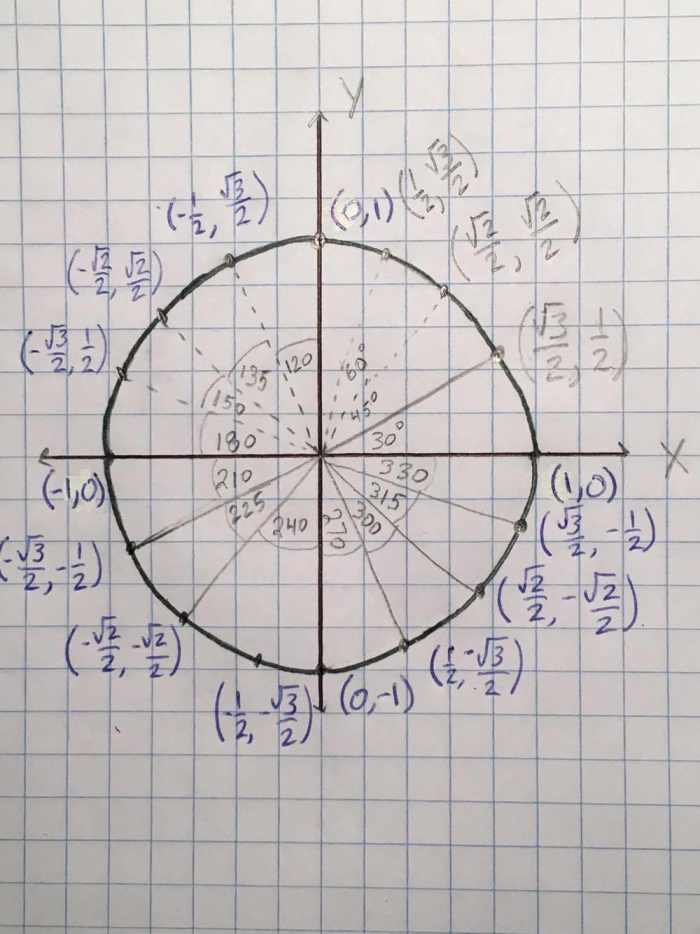 Y
(-1/2, √3/2)
(0,1)
(1/2, √3/2)
(-√2/2, √2/2)
(√2/2, √2/2)
(-√3/2, 1/2)
(√3/2, 1/2)
120
60°
135
45°
150
30°
180
X
(-1,0)
210
330
(1,0)
225
315
240
270
300
(-√3/2, -1/2)
(√3/2, -1/2)
(-√2/2, -√2/2)
(√2/2, -√2/2)
(-1/2, -√3/2)
(0,-1)
(1/2, -√3/2)